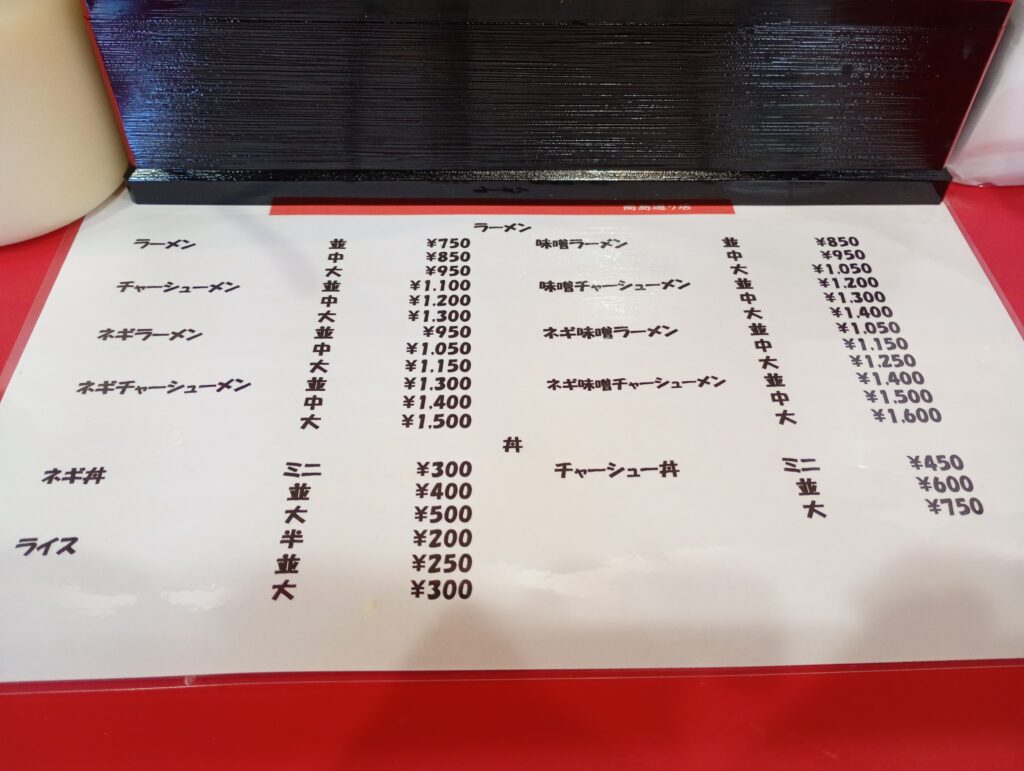 ラーメン
ラーメン 並 ¥750 味噌ラーメン 並 ¥850
中 ¥850 中 ¥950
大 ¥950 大 ¥1.050
チャーシューメン 並 ¥1.100 味噌チャーシューメン 並 ¥1.200
中 ¥1.200 中 ¥1.300
大 ¥1.300 大 ¥1.400
ネギラーメン 並 ¥950 ネギ味噌ラーメン 並 ¥1.050
中 ¥1.050 中 ¥1.150
大 ¥1.150 大 ¥1.250
ネギチャーシューメン 並 ¥1.300 ネギ味噌チャーシューメン 並 ¥1.400
中 ¥1.400 中 ¥1.500
大 ¥1.500 大 ¥1.600
丼
ネギ丼 ミニ ¥300 チャーシュー丼 ミニ ¥450
並 ¥400 並 ¥600
大 ¥500 大 ¥750
ライス 半 ¥200
並 ¥250
大 ¥300